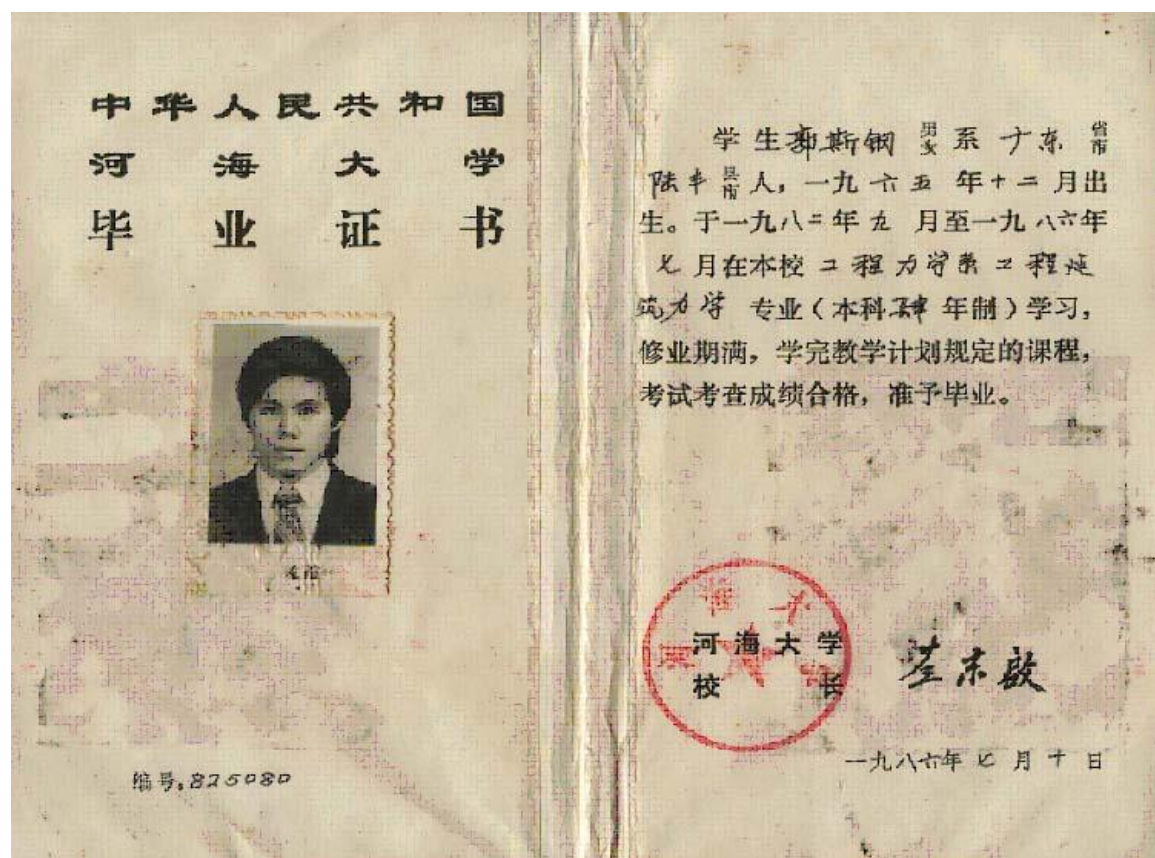 中华人民共和国
河海大学
毕业证书
编号:825080
学生郭斯钢 男女 系 广东 省市
陆丰 县市 人，一九六五年十二月出
生。于一九八二年九月至一九八六年
七月在本校工程力学系工程建
筑力学 专业（本科肆年制）学习，
修业期满，学完教学计划规定的课程，
考试考查成绩合格，准予毕业。
河海大学
校长
一九八六年七月十日